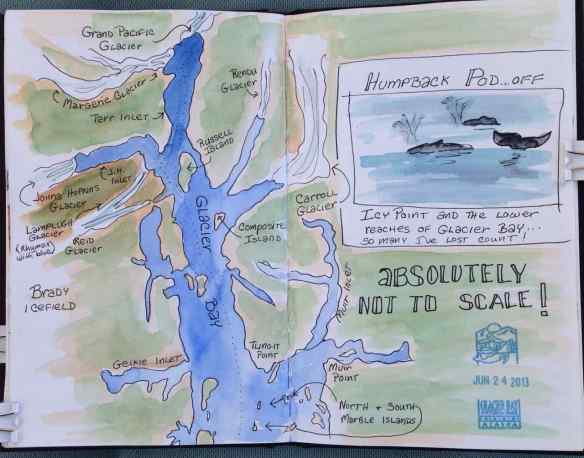 Grand Pacific
Glacier
Margerie Glacier
Tarr Inlet
Rendu
Glacier
Russell
Island
J.H.
Inlet
Johns Hopkins
Glacier
Lamplugh
Glacier
Reid
Glacier
Brady
Icefield
Glacier
Bay
Composite
Island
Carroll
Glacier
Muir Inlet
Geikie Inlet
Tlingit
Point
Muir
Point
North + South
Marble Islands
Humpback Pod...off
Icy Point and the lower
reaches of Glacier Bay...
so many I've lost count!
ABSOLUTELY
NOT TO SCALE!
JUN 24 2013
GLACIER BAY
ALASKA